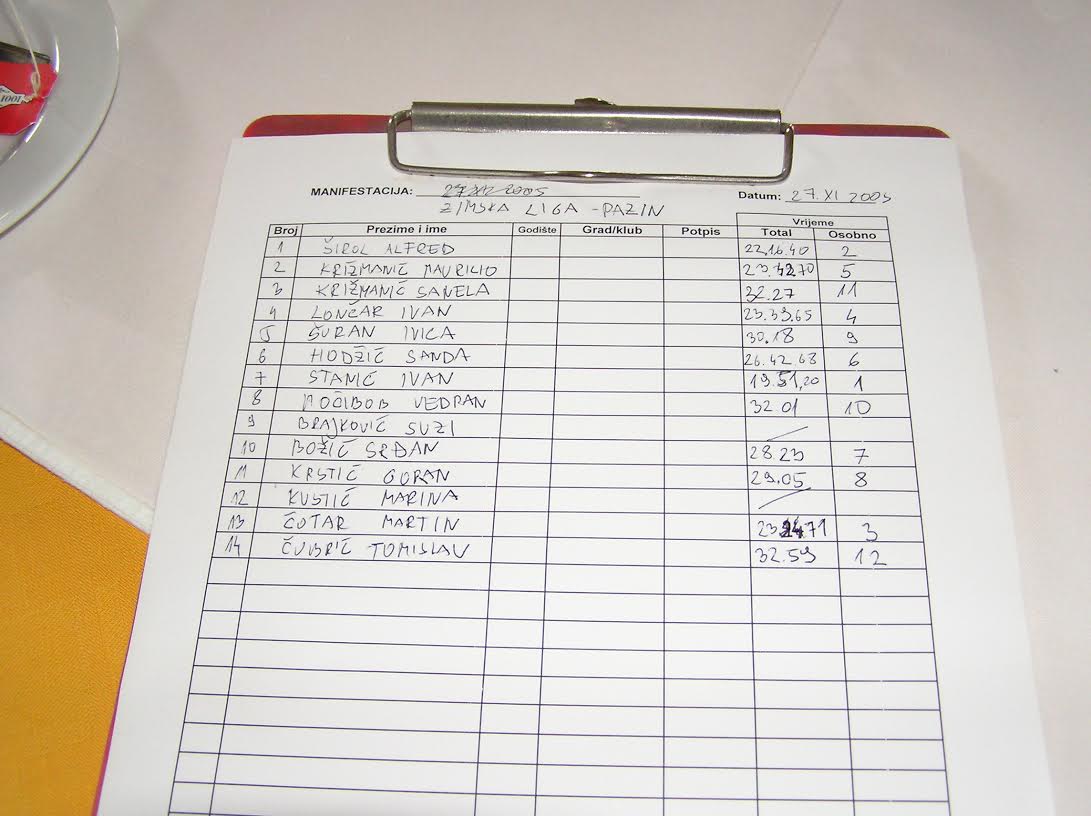 MANIFESTACIJA: Datum: 27. XI 2005
ZIMSKA LIGA - PAZIN
Vrijeme
Broj Prezime i ime Godište Grad/klub Potpis Total Osobno
1 ŠIROL ALFRED 22,16.40 2
2 KRIŽMANIĆ MAURILIO 5
3 KRIŽMANIĆ SANELA 32.27 11
4 LONČAR IVAN 23.39.65 4
5 ŠURAN IVICA 30.18 9
6 HODŽIĆ SANDA 26.42.68 6
7 STANIĆ IVAN 19.51,20 1
8 POČIBOB VEDRAN 32.01 10
9 BRAJKOVIĆ SUZI
10 BOŽIĆ SRĐAN 28.23 7
11 KRSTIĆ GORAN 29.05 8
12 KUSTIĆ MARINA
13 ČOTAR MARTIN 3
14 ČUBRIĆ TOMISLAV 32.59 12